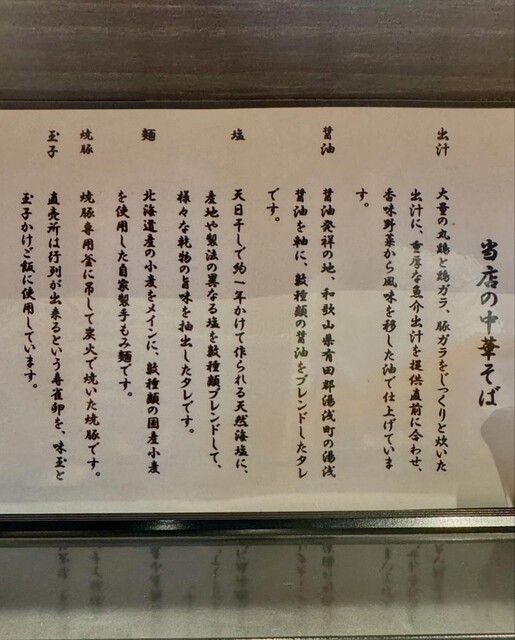 当店の中華そば
出汁
大量の丸鶏と鶏ガラ、豚ガラをじっくりと炊いた
出汁に、重厚な魚介出汁を提供直前に合わせ、
香味野菜から風味を移した油で仕上げていま
す。
醤油
醤油発祥の地、和歌山県有田郡湯浅町の湯浅
醤油を軸に、数種類の醤油をブレンドしたタレ
です。
塩
天日干しで約一年かけて作られる天然海塩に、
産地や製法の異なる塩を数種類ブレンドして、
様々な乾物の旨味を抽出したタレです。
麺
北海道産の小麦をメインに、数種類の国産小麦
を使用した自家製手もみ麺です。
焼豚
焼豚専用釜に吊して炭火で焼いた焼豚です。
玉子
直売所は行列が出来るという寿雀卵を、味玉と
玉子かけご飯に使用しています。